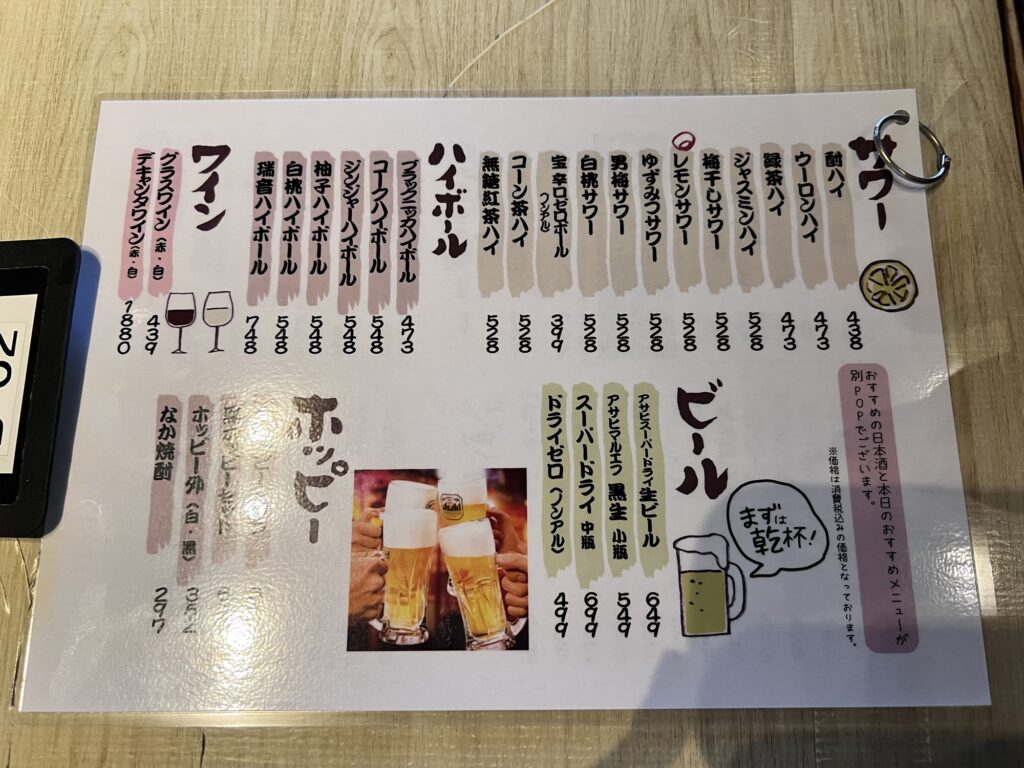 サワー
酎ハイ 438
ウーロンハイ 473
緑茶ハイ 473
ジャスミンハイ 528
梅干しサワー 528
レモンサワー 528
ゆずみつサワー 528
男梅サワー 528
白桃サワー 528
宝 辛口ゼロボール 399
(ノンアル)
コーン茶ハイ 528
無糖紅茶ハイ 528
ハイボール
ブラックニッカハイボール 473
コークハイボール 548
ジンジャーハイボール 548
柚子ハイボール 548
白桃ハイボール 548
瑞音ハイボール 748
ワイン
グラスワイン(赤・白) 439
デキャンタワイン(赤・白) 1880
おすすめの日本酒と本日のおすすめメニューが
別POPでございます。
※価格は消費税込みの価格となっております。
まずは
乾杯!
ビール
アサヒスーパードライ生ビール 649
アサヒマルエフ 黒生 小瓶 549
スーパードライ 中瓶 699
ドライゼロ(ノンアル) 499
Asahi
ホッピー
ホッピー外(白・黒)
なか焼酎 297
02